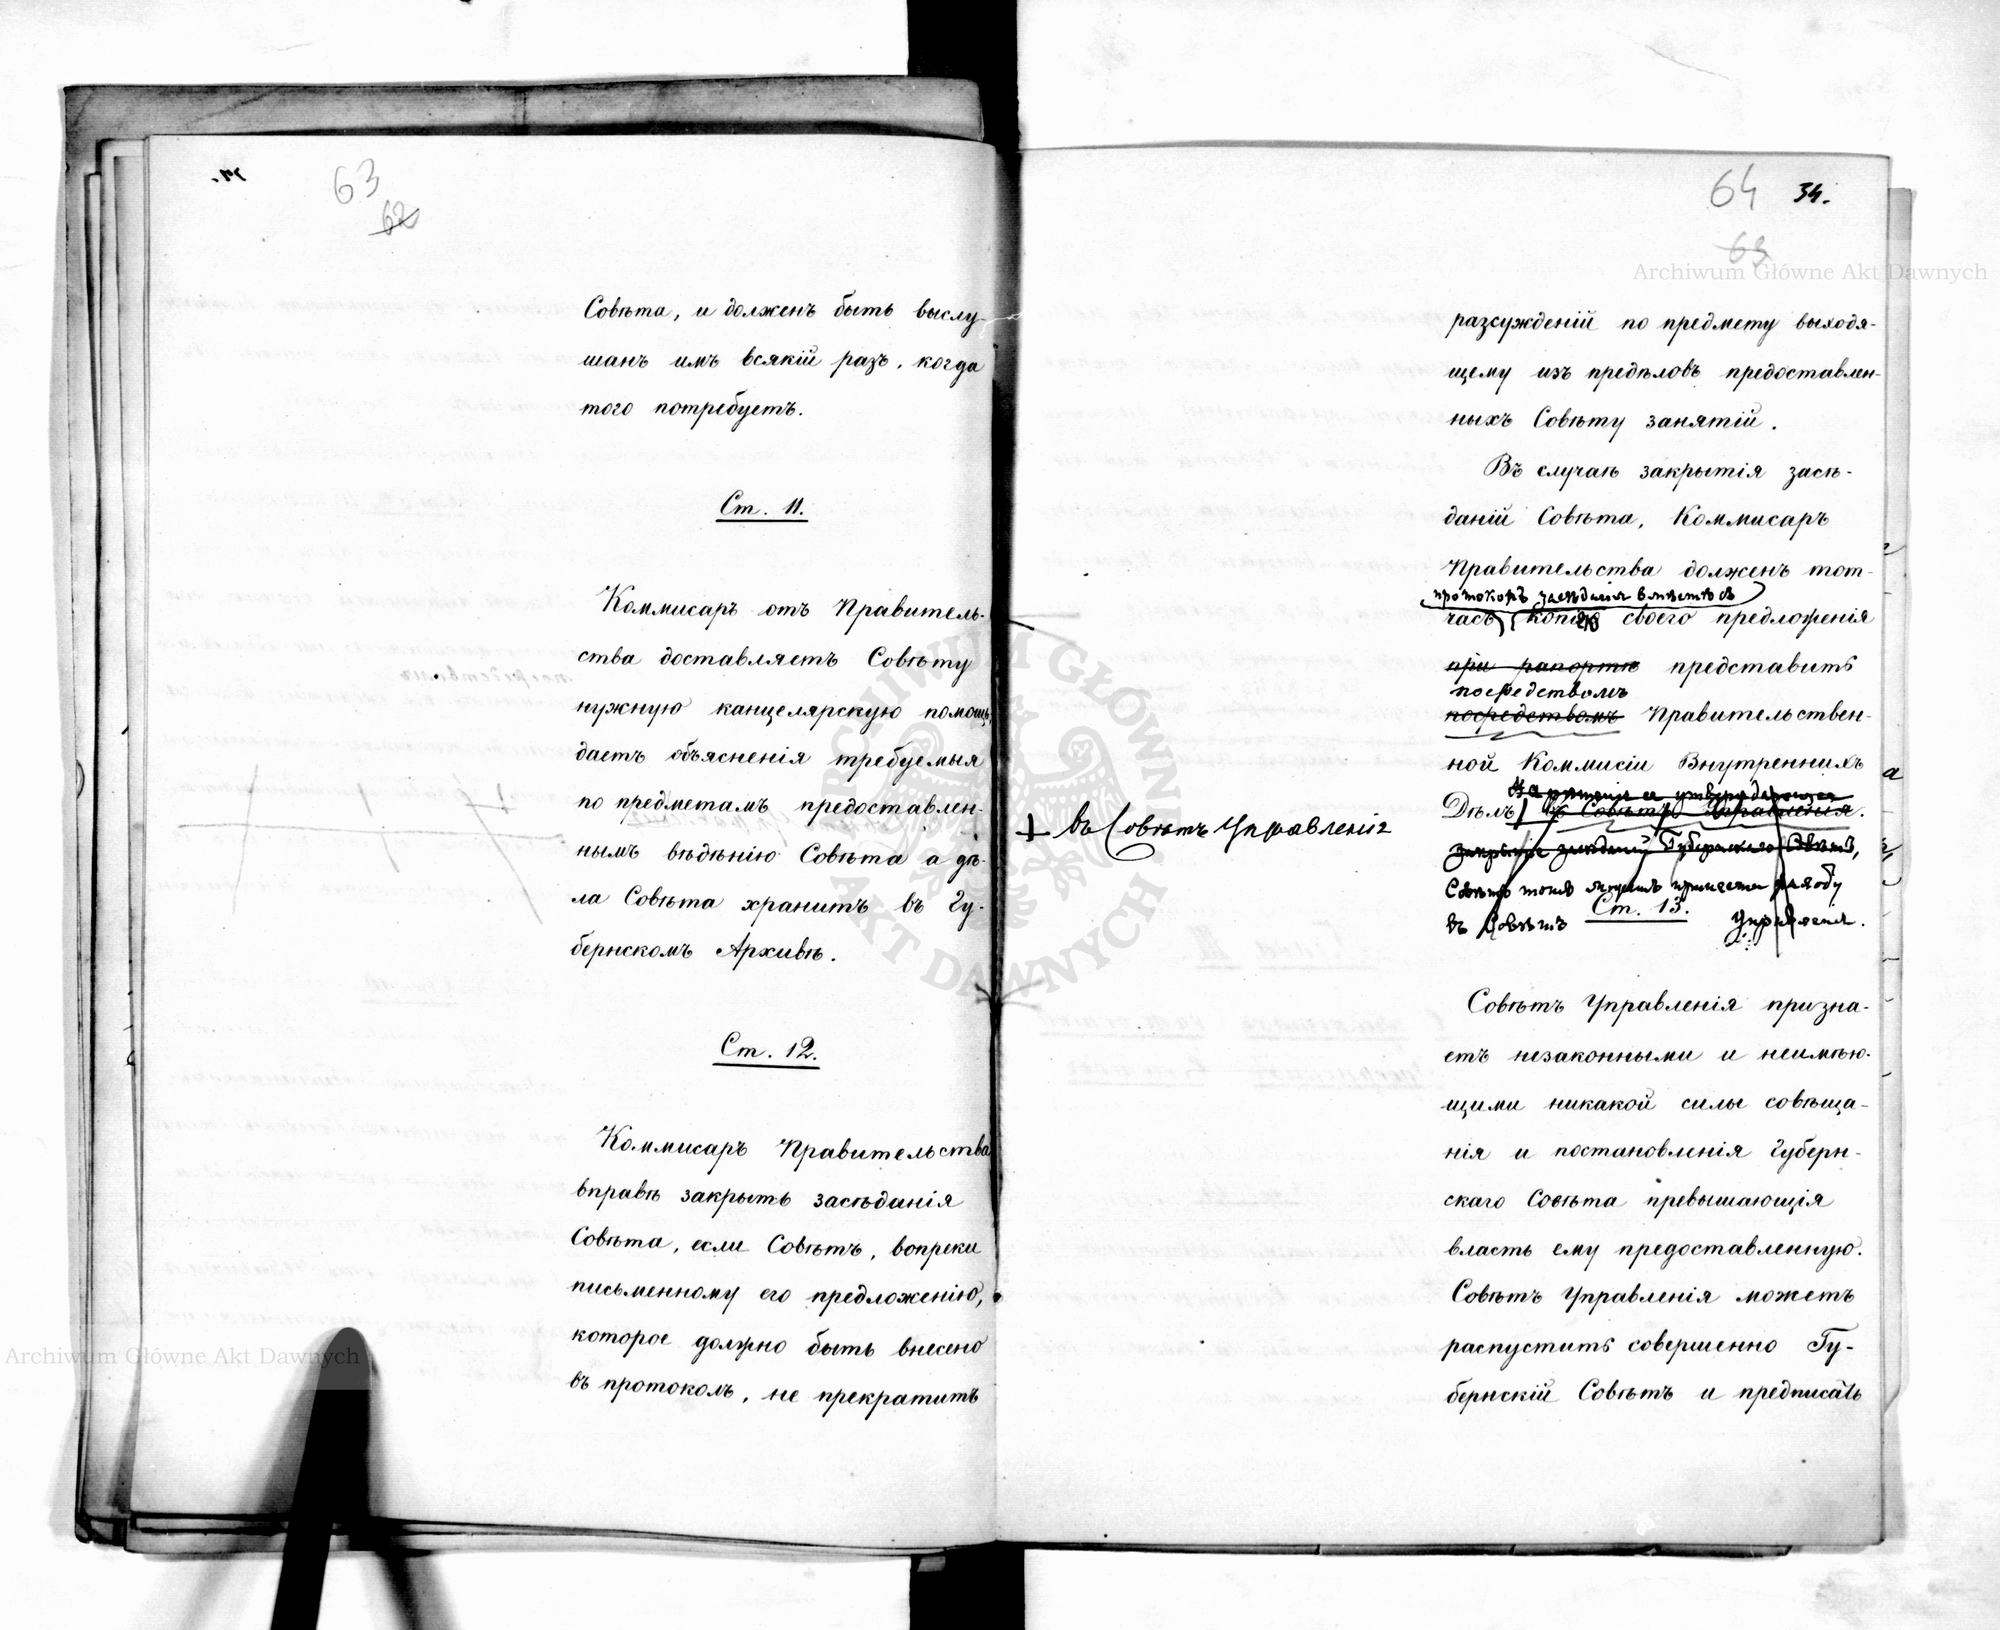 63
62
Совѣта, и долженъ быть выслу-
шанъ имъ всякій разъ, когда
того потребуетъ.
Ст. 11.
Коммисаръ отъ Правитель-
ства доставляетъ Совѣту
нужную канцелярскую помощь,
даетъ объясненія требуемыя
по предметамъ предоставлен-
нымъ вѣдѣнію Совѣта а дѣ-
ла Совѣта хранитъ въ Гу-
бернскомъ Архивѣ.
Ст. 12.
Коммисаръ Правительства
вправѣ закрыть засѣданія
Совѣта, если Совѣтъ, вопреки
письменному его предложенію,
которое должно быть внесено
въ протоколъ, не прекратитъ
64 34.
63
разсужденій по предмету выходя-
щему изъ предѣловъ предоставлен-
ныхъ Совѣту занятій.
Въ случаѣ закрытія засѣ-
даній Совѣта, Коммисаръ
Правительства долженъ тот-
протоколъ засѣданія вмѣстѣ съ
часъ копію своего предложенія
при рапортѣ представить
посредствомъ
посредствомъ Правительствен-
ной Коммисіи Внутреннихъ
Дѣлъ въ Совѣтъ Управленія.
+ въ Совѣтъ Управленія
закрытіе засѣданій Губернскаго Совѣта,
Совѣтъ тотъ можетъ принести жалобу
въ Совѣтъ Управленія.
Ст. 13.
Совѣтъ Управленія призна-
етъ незаконными и неимѣю-
щими никакой силы совѣща-
нія и постановленія Губерн-
скаго Совѣта превышающія
власть ему предоставленную.
Совѣтъ Управленія можетъ
распустить совершенно Гу-
бернскій Совѣтъ и предписать
Archiwum Główne Akt Dawnych
Archiwum Główne Akt Dawnych
ARCHIWUM GŁÓWNE AKT DAWNYCH